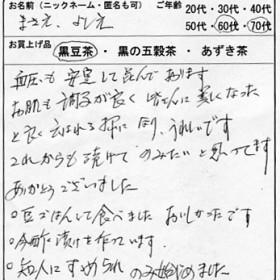 お名前（ニックネーム・匿名も可） ご年齢 20代・30代・40代
50代・60代・70代
お買上げ品 黒豆茶 ・ 黒の五穀茶 ・ あずき茶
血圧も 安定して 喜んでおります
お肌も 調子が良く 皆さんに 美しくなった
と 良く 云はれる 様に なり、うれしいです
これからも 続けて のみたいと 思ってます
ありがとうございました
○豆ごはんして 食べました おいしかったです
○今 酢漬けを 作っています。
○知人に すゝめられ のみ始めました